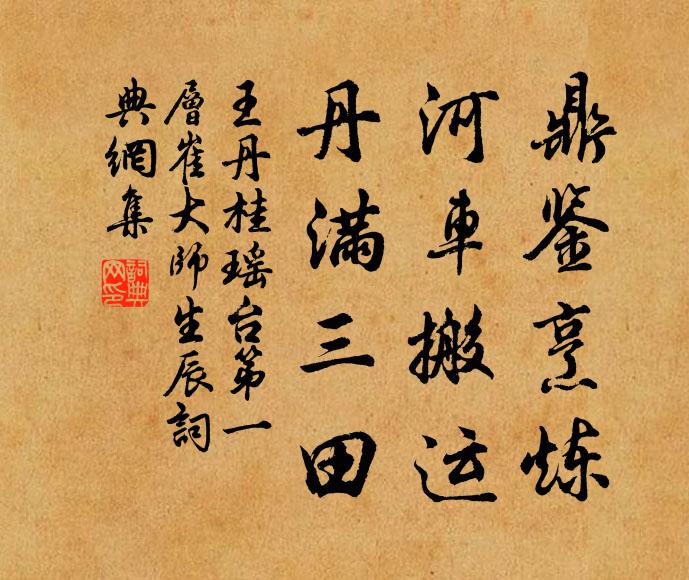 鼎鉴烹炼
河車搬运
丹满三田
王丹桂瑶台第一
層崔大师生辰詞
典網集
詞典网印